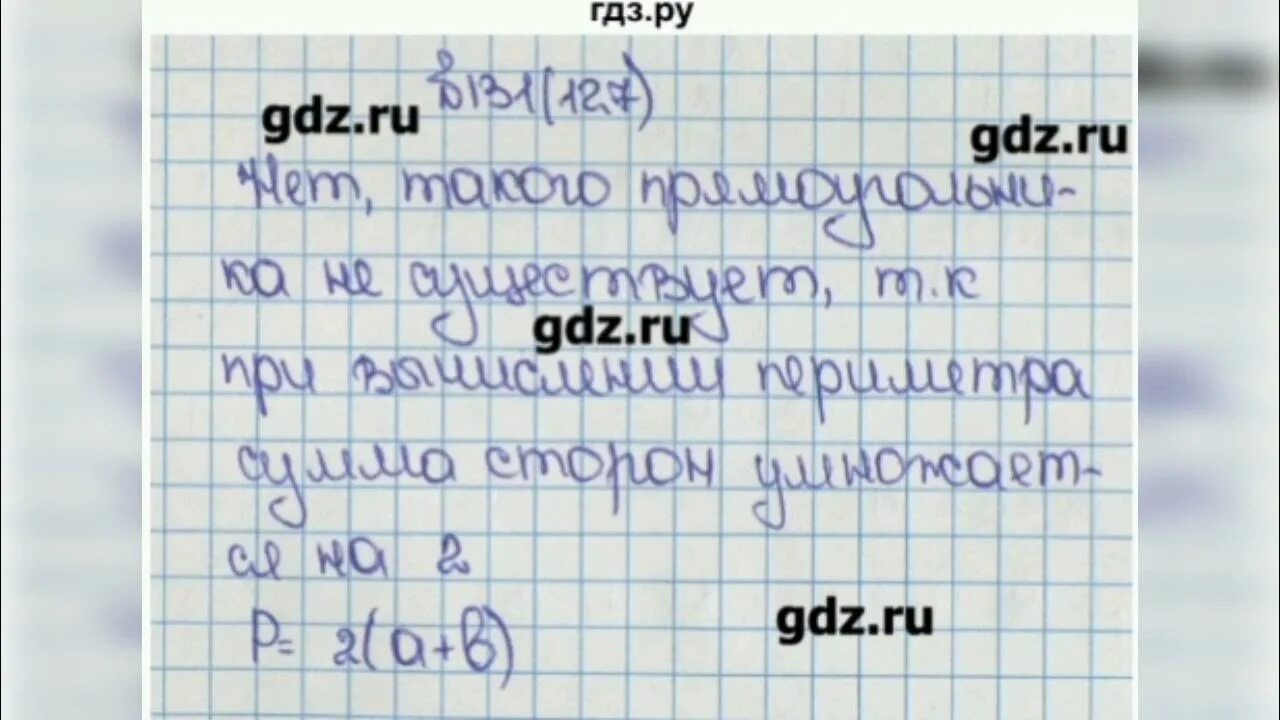 гдз.ру
№131(127)
gdz.ru
gdz.ru
Нет, такого прямоугольни-
ка не существует, т.к
gdz.ru
при вычислении периметра
сумма сторон умножает-
ся на 2
gdz.ru
P= 2(a+b)